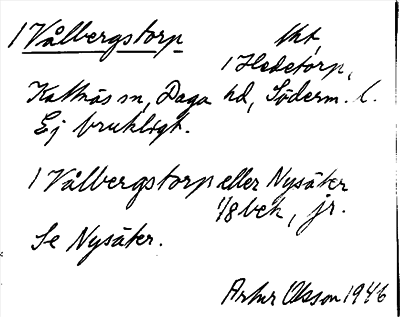 1 Vålbergstorp lht
1 Hedetorp,
Kattnäs sn, Daga hd, Söderm. l.
Ej brukligt.
1 Vålbergstorp eller Nysäter
1/8 bek, jr.
Se Nysäter.
Artur Olsson 1946